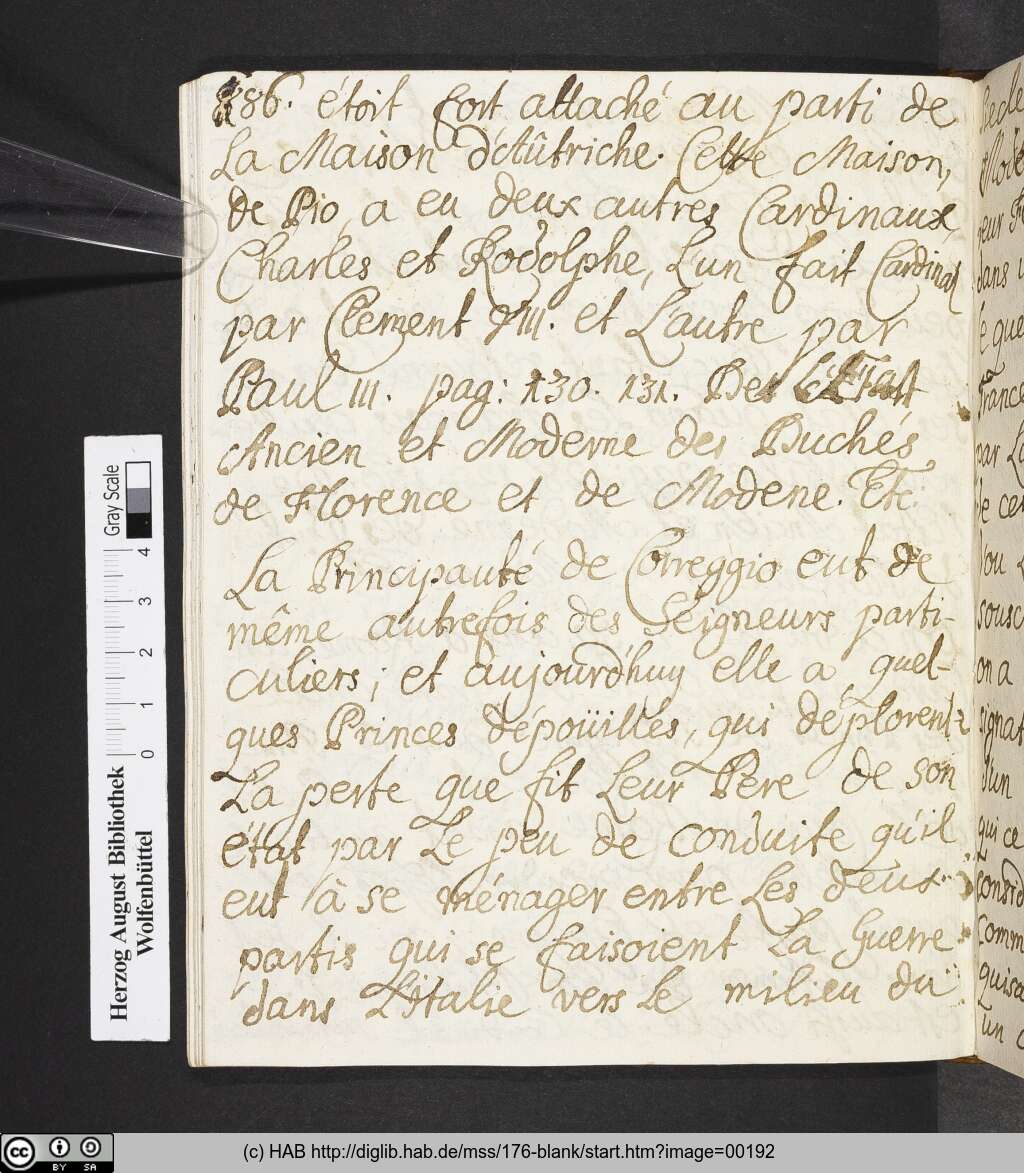 186. étoit fort attaché au parti de
La Maison d'Aûtriche. Cette Maison,
de Pio, a eu deux autres Cardinaux,
Charles et Rodolphe, L'un fait Cardinal
par Clement VIII. et L'autre par
Paul III. pag: 130. 131. De L'Etat
Ancien et Moderne des Duchés
de Florence et de Modene. Etc:
La Principauté de Correggio eut de
même autrefois des Seigneurs parti-
culiers; et aujourd'huy elle a quel-
ques Princes dépoüillés, qui déplorent
La perte que fit Leur Pere de son
état par Le peu de conduite qu'il
eut à se ménager entre Les deux
partis qui se faisoient La Guerre
dans L'Italie vers Le milieu du
Herzog August Bibliothek
Wolfenbüttel
0 1 2 3 4
Gray Scale
CC BY SA
(c) HAB http://diglib.hab.de/mss/176-blank/start.htm?image=00192